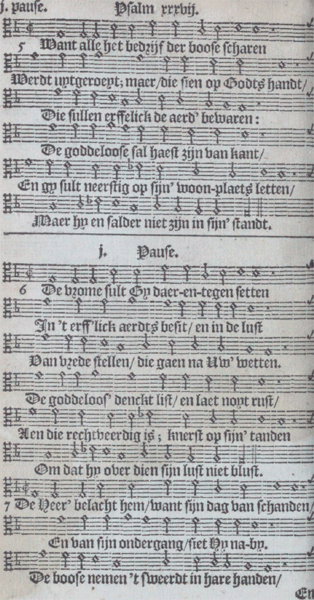 j. pause. Psalm xxxvij.
5 Want alle het bedrijf der boose scharen
Werdt uytgeroeyt; maer/die sien op Godts handt/
Die sullen erffelick de aerd' bewaren:
De goddeloose sal haest zijn van kant/
En gy sult neerstig op sijn' woon-plaets letten/
Maer hy en salder niet zijn in sijn' standt.
j. Pause.
6 De vrome sult Gy daer-en-tegen setten
In 't erff'lick aerdts besit/en in de lust
Van vrede stellen/die gaen na Uw' wetten.
De goddeloos' denckt list/en laet noyt rust/
Aen die rechtveerdig is; knerst op sijn' tanden
Om dat hy over dien sijn lust niet blust.
7 De Heer' belacht hem/want sijn dag van schanden/
En van sijn ondergang/siet Hy na-by.
De boose nemen 't sweerdt in hare handen/
En